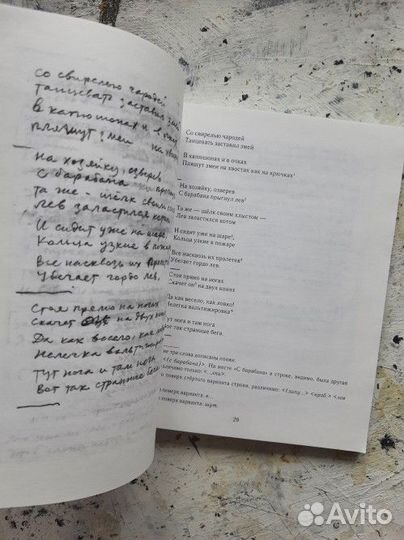 со свирелью чародей
танцевать заставил змей
В капюшонах и в
пляшут змеи на
На хозяйку, озверев
С барабана
та же - шёлк своим
лев заластился
И сидит уже на шаре,
Кольца узкие в пожаре
Все насквозь их
Убегает гордо лев.
Стоя прямо на ногах
Скачет он на двух
Да как весело, как
Нелегка вольтижировка
Тут нога и там нога
Вот так странные бега
Со свирелью чародей
Танцевать заставил змей
В капюшонах и в очках
Пляшут змеи на хвостах как на крючках¹
На хозяйку, озверев
С барабана прыгнул лев²
Та же — шёлк своим хлыстом —
Лев заластился котом
И сидит уже на шаре³,
Кольца узкие в пожаре
Все насквозь их пролетев⁴
Убегает гордо лев.
Стоя прямо на ногах
Скачет он⁵ на двух конях
Да как весело, как ловко!
Нелегка вольтижировка⁶
Тут нога и там нога
так странные бега.
три слова вписаны позже.
<С барабана>. На месте «С барабана» в строке, видимо, была другая
только: «
поверх стёртого варианта строки, различимо:
поверх варианта: шарт.
29
Avito